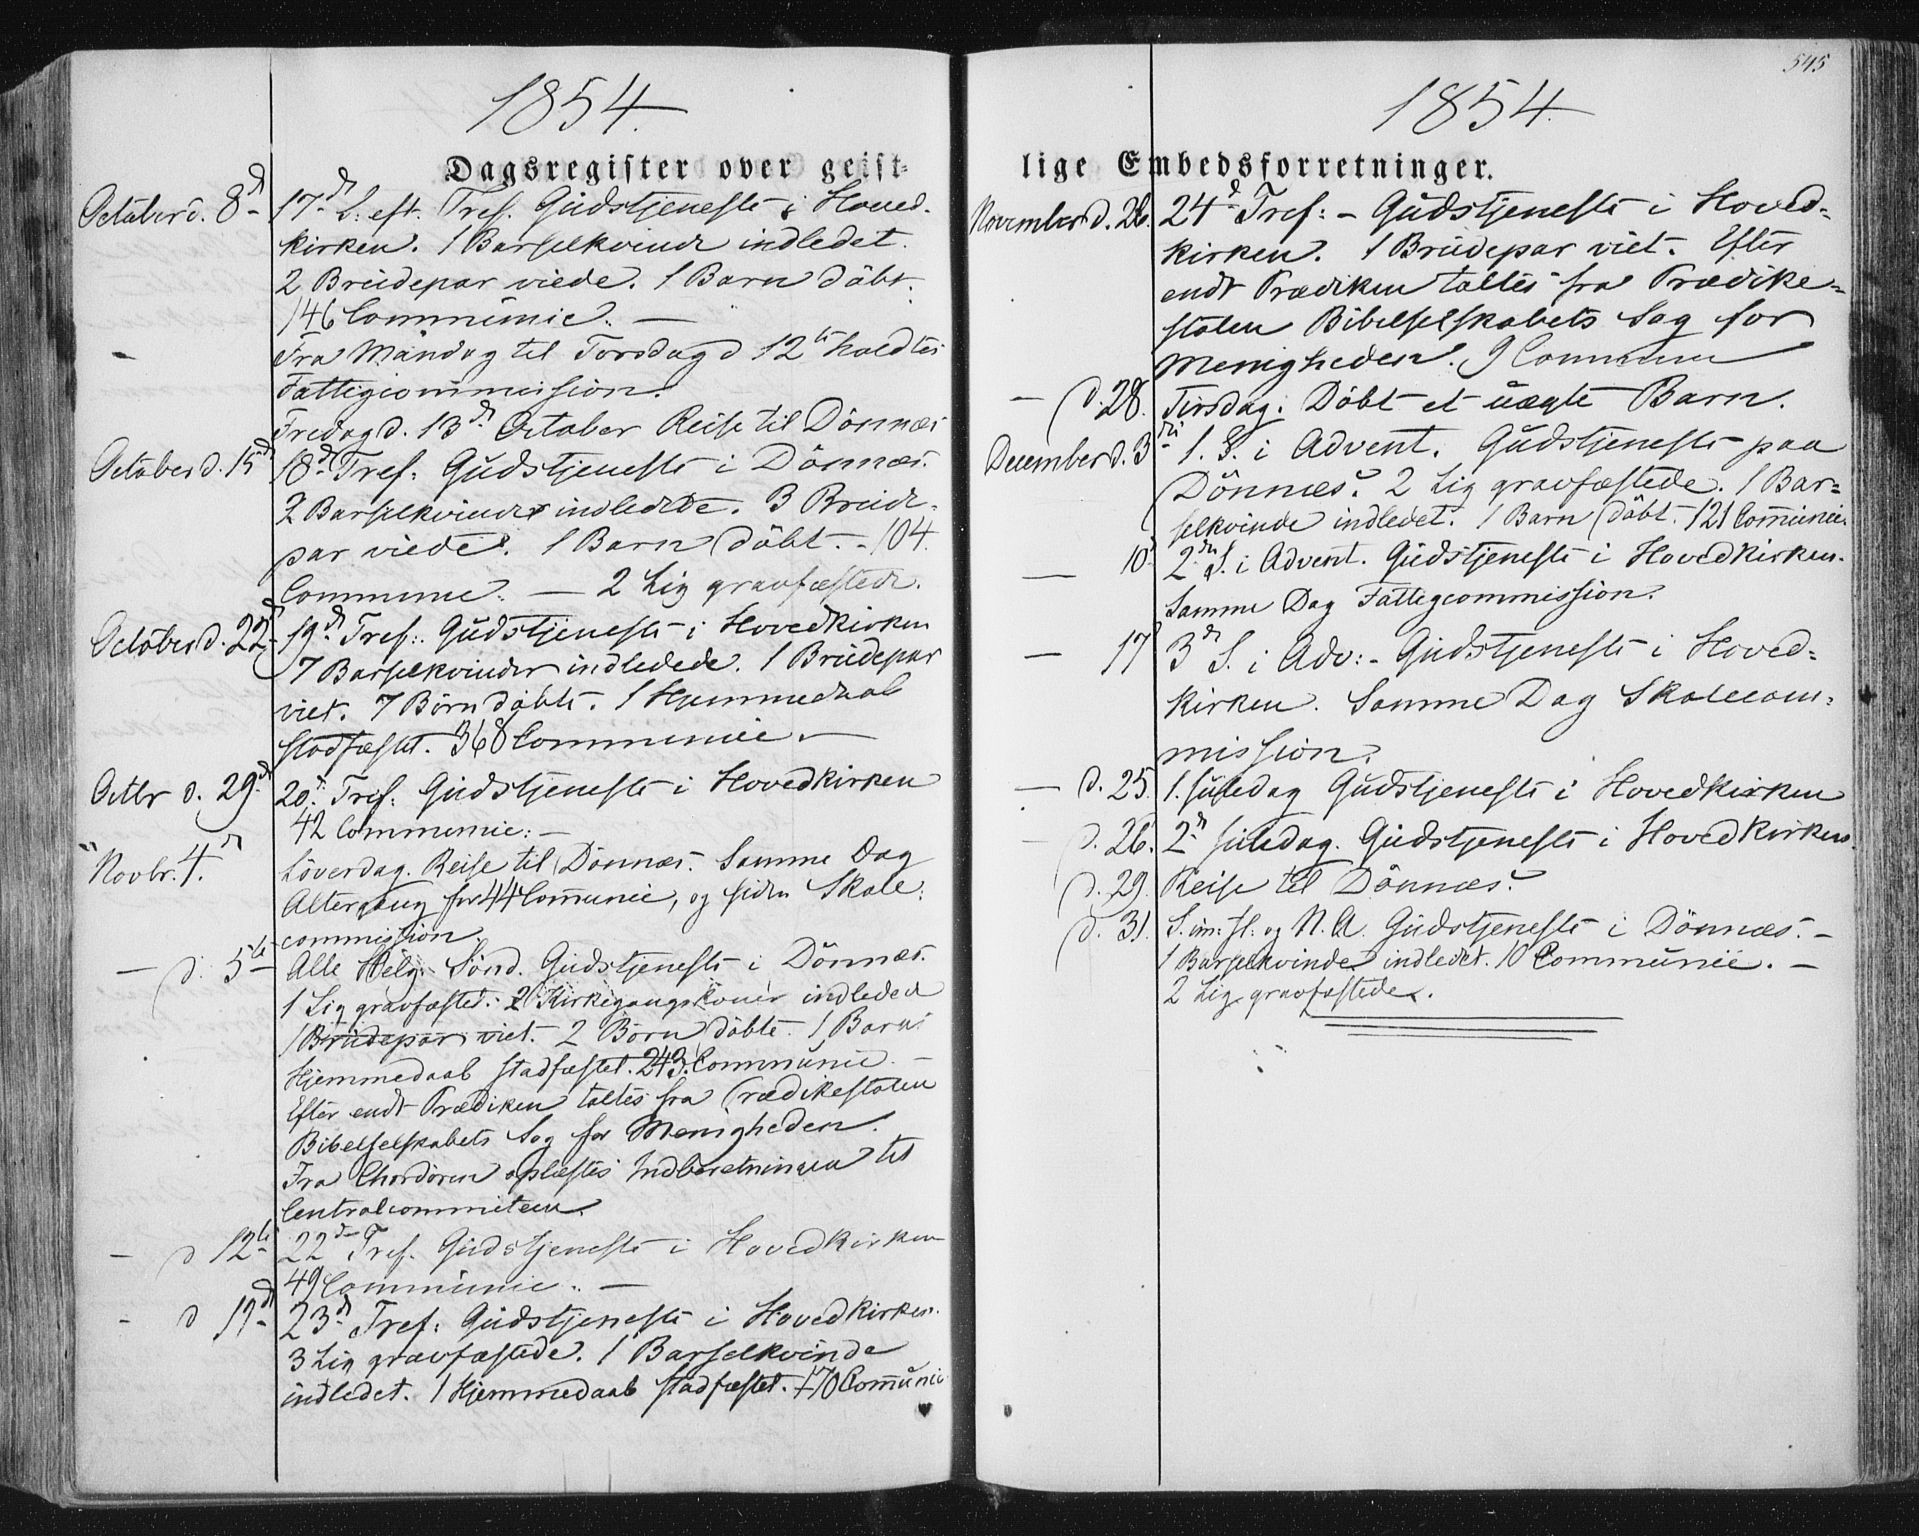 1854.
Dagsregister over geist-
October d. 8d
17d S: eft. Tref. Gudstjeneste i Hoved-
kirken. 1 Barselkvinde indledet.
2 Brudepar viede. 1 Barn döbt.
146 Communic. —
Fra Mandag til Torsdag d 12te holdtes
Fattigcommission.
Fredag d. 13d October Reise til Dönnæs
October d. 15d
18d Tref: Gudstjeneste i Dönnæs.
2 Barselkvinder indledede. 3 Brude-
par viede. 1 Barn döbt. - 104
Communic. — 2 Lig gravfæstede.
October d. 22d
19d Tref: Gudstjeneste i Hovedkirken
7 Barselkvinder indledede. 1 Brudepar
viet. 7 Börn döbte. 1 Hjemmedaab
stadfæstet. 368 Communic. —
Octbr d. 29d
20d Tref: Gudstjeneste i Hovedkirken
42 Communic: —
Novbr. 4d
Löverdag. Reise til Dönnæs. Samme Dag
Altergang for 44 Communic, og siden Skole-
commission.
— d. 5te
Alle Helg. Sönd. Gudstjeneste i Dönnæs.
1 Lig gravfæstet. 2 Kirkegangskoner indledede
1 Brudepar viet. 2 Börn döbte. 1 Barns
Hjemmedaab stadfæstet. 243 Communic. —
Efter endt Prædiken taltes fra Prædikestolen
Bibelselskabets Sag for Menigheden.
Fra Chordören oplæstes Indberetningen til
Centralcommiteen.
— d 12te
22d Tref. Gudstjeneste i Hovedkirken
49 Communic. —
- d 19d
23d Tref: Gudstjeneste i Hovedkirken.
3 Lig gravfæstede. 1 Barselkvinde
indledet. 1 Hjemmedaab stadfæstet. 170 Communic
545
1854.
lige Embedsforretninger.
November d. 26.
24d Tref: - Gudstjeneste i Hoved-
kirken. 1 Brudepar viet. Efter
endt Prædiken taltes fra Prædike-
stolen Bibelselskabets Sag for
Menigheden. 9 Commun
— d. 28.
Tirsdag. Döbt et uægte Barn.
December d. 3die
1. S. i Advent. Gudstjeneste paa
Dönnæs. 2 Lig gravfæstede. 1 Bar-
selkvinde indledet. 1 Barn döbt. 121 Communic.
— 10d
2den S. i Advent. Gudstjeneste i Hovedkirken.
Samme Dag Fattigcommission.
— 17d
3d S. i Adv: - Gudstjeneste i Hoved-
kirken. Samme Dag Skolecom-
mission.
— d. 25.
1. Juledag Gudstjeneste i Hovedkirken
— d. 26.
2d Juledag. Gudstjeneste i Hovedkirken.
d. 29.
Reise til Dönnæs.
d. 31.
S. im: Jl: og N. A. Gudstjeneste i Dönnæs. —
1 Barselkvinde indledet. 10 Communic. —
2 Lig gravfæstede.